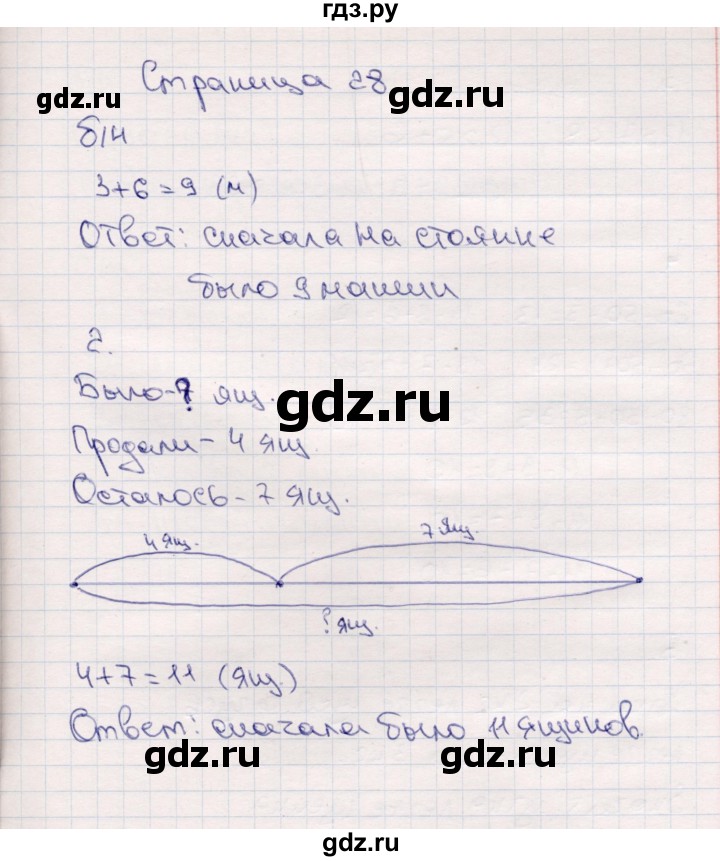 гдз.ру
Страница 28
gdz.ru
gdz.ru
б/н
3+6=9 (м)
Ответ: сначала на стоянке
было 9 машин
2.
Было-? ящ.
gdz.ru
Продали-4 ящ.
Осталось-7 ящ.
4 ящ.
7 ящ.
? ящ.
4+7=11 (ящ.)
Ответ: сначала было 11 ящиков.
gdz.ru
gdz.ru
gdz.ru